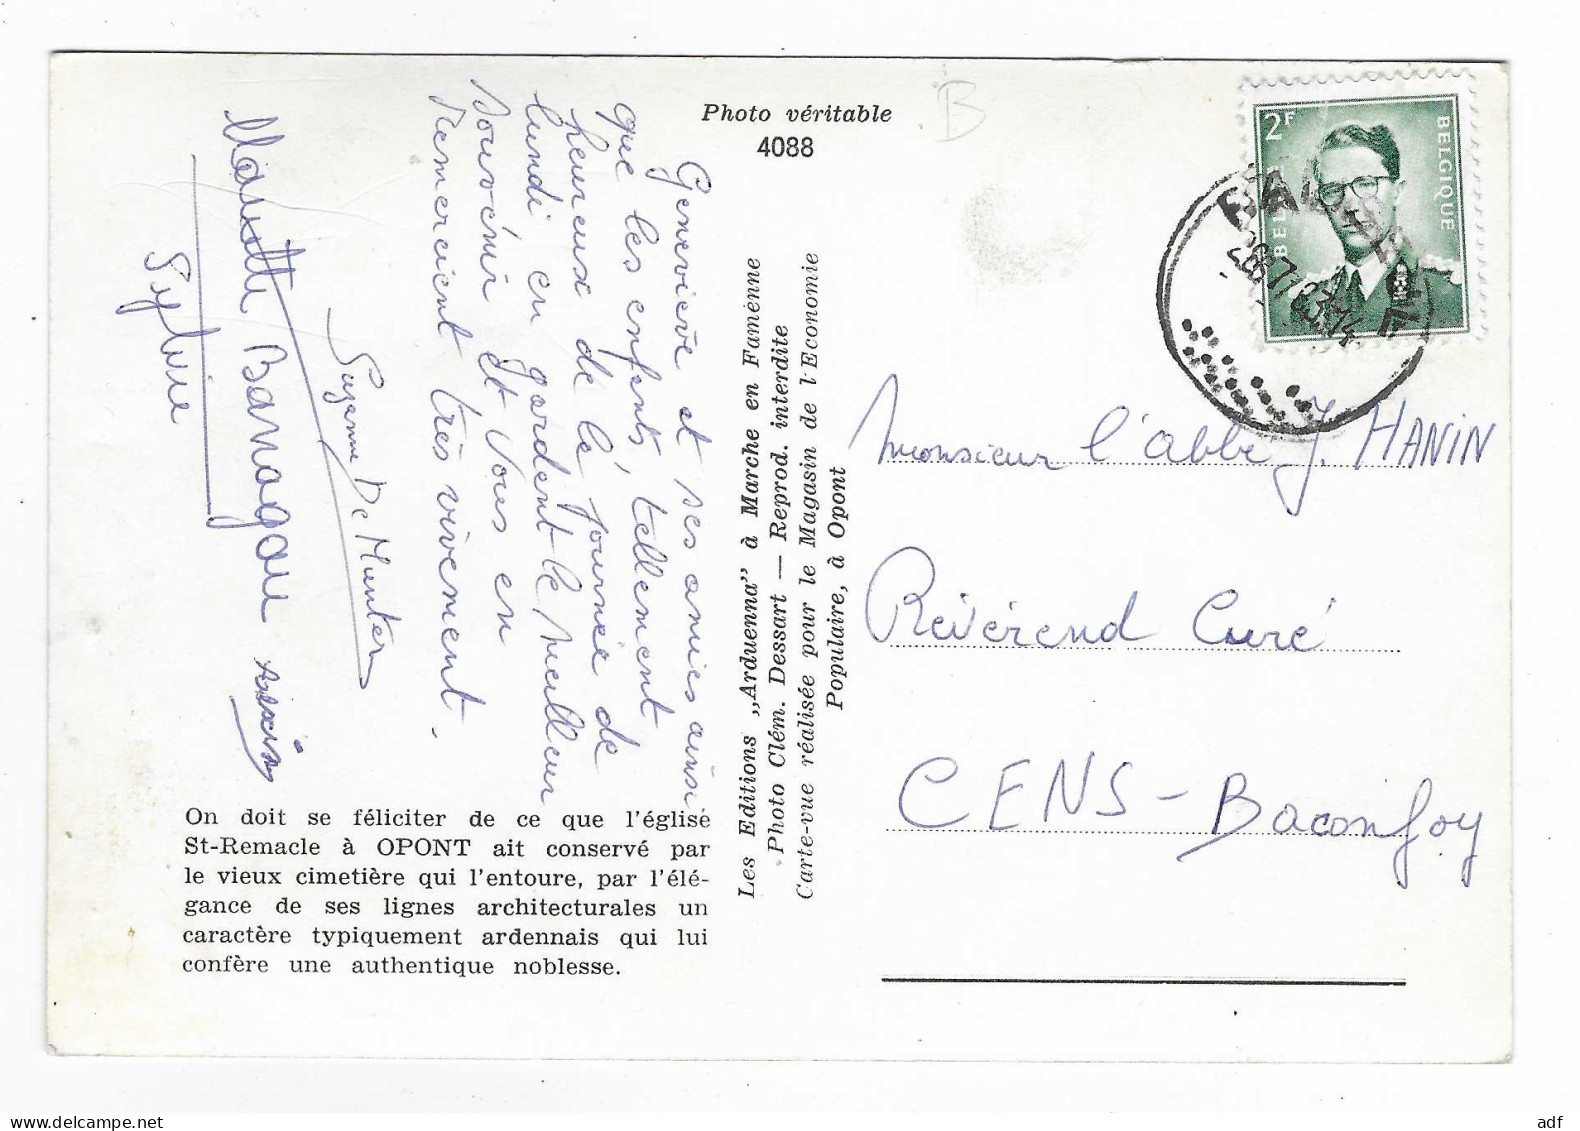 Photo véritable
4088
B
2F
BELGIQUE
BELGIË
PALISEUL
Geneviève et ses amies ainsi
que les enfants, tellement
heureux de la journée de
lundi en gardent le meilleur
souvenir et vous en
remercient très vivement.
Suzanne De Munter
Sylvie
Les Editions „Arduenna” à Marche en Famenne
Photo Clém. Dessart — Reprod. interdite
Carte-vue réalisée pour le Magasin de l'Economie
Populaire, à Opont
Monsieur l'abbé J. HANIN
Révérend Curé
CENS - Baconfoy
On doit se féliciter de ce que l'église
St-Remacle à OPONT ait conservé par
le vieux cimetière qui l'entoure, par l'élé-
gance de ses lignes architecturales un
caractère typiquement ardennais qui lui
confère une authentique noblesse.
www.delcampe.net
adf